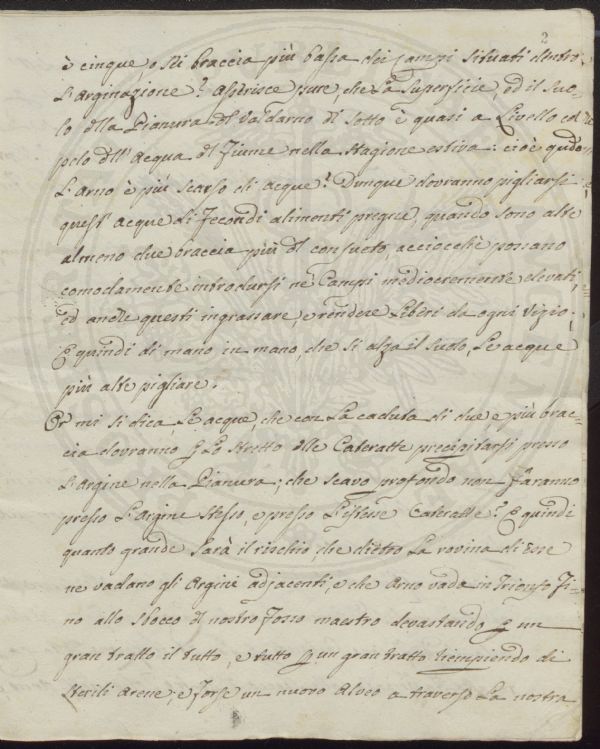 2
è cinque, o sei braccia più bassa dei campi situati dentro
L'arginazione? Asserisce pure, che La Superficie, ed il Suo-
lo dlla Pianura dl Valdarno di Sotto è quasi a Livello col
pelo dll' Acqua dl Fiume nella Stagione estiva: cioè qũdo
L'Arno è più scarso di acque? Dunque dovranno pigliarsi
quest' acque di fecondi alimenti pregne, quando sono alte
almeno due braccia più dl consueto, acciocchè possano
comodamente introdursi ne' Campi mediocremente elevati,
ed anche questi ingrassare, e rendere Liberi da ogni vizio.
E quindi di mano in mano, che si alza il Suolo, Le acque
più alte pigliare.
Or mi si dica, Le acque, che con La caduta di due, e più brac-
cia dovranno p Lo stretto dlle Cateratte precipitarsi presso
L'argine nella Pianura; che scavo profondo non faranno
presso L'argine stesso, e presso L'istesse Cateratte? E quindi
quanto grande Sarà il rischio, che dietro La rovina di esse
ne vadano gli Argini adjacenti, e che Arno vada in trionfo fi-
no allo sbocco dl nostro fosso maestro devastando p un
gran tratto il tutto, e tutto p un gran tratto riempiendo di
sterili arene; e forse un nuovo alveo a traverso La nostra